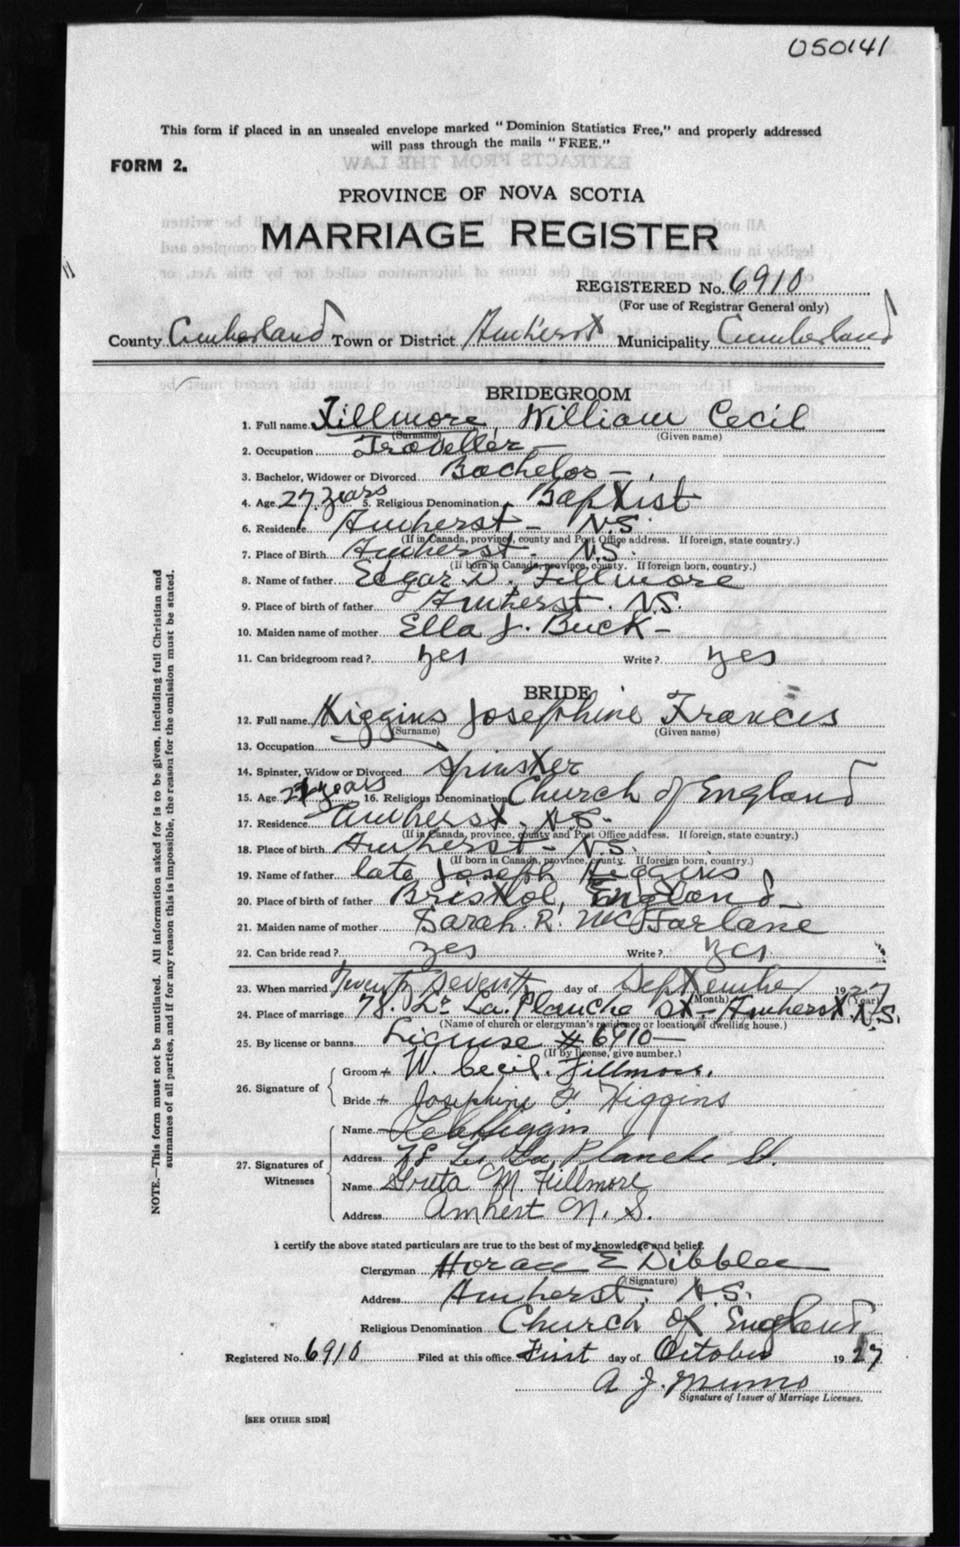 050141
This form if placed in an unsealed envelope marked "Dominion Statistics Free," and properly addressed
will pass through the mails "FREE."
FORM 2.
PROVINCE OF NOVA SCOTIA
MARRIAGE REGISTER
REGISTERED No. 6910
(For use of Registrar General only)
County Cumberland Town or District Amherst Municipality Cumberland
BRIDEGROOM
1. Full name Fillmore, William Cecil
(Surname) (Given name)
2. Occupation Traveller
3. Bachelor, Widower or Divorced Bachelor
4. Age 27 years 5. Religious Denomination Baptist
6. Residence Amherst - N.S.
(If in Canada, province, county and Post Office address. If foreign, state country.)
7. Place of Birth Amherst - N.S.
(If born in Canada, province, county. If foreign born, country.)
8. Name of father Edgar D. Fillmore
9. Place of birth of father Amherst. N.S.
10. Maiden name of mother Ella J. Buck
11. Can bridegroom read? yes Write? yes
BRIDE
12. Full name Higgins Josephine Frances
(Surname) (Given name)
13. Occupation
14. Spinster, Widow or Divorced Spinster
15. Age years 16. Religious Denomination Church of England
17. Residence Amherst. N.S.
(If in Canada, province, county and Post Office address. If foreign, state country.)
18. Place of birth Amherst - N.S.
(If born in Canada, province, county. If foreign born, country.)
19. Name of father late Joseph Higgins
20. Place of birth of father Bristol, England
21. Maiden name of mother Sarah. R. McFarlane
22. Can bride read? yes Write? yes
23. When married Twenty Seventh day of September 1927
(Month) (Year)
24. Place of marriage 78. La Planche St - Amherst N.S.
(Name of church or clergyman's residence or location of dwelling house.)
25. By license or banns License # 6910
(If by license, give number.)
26. Signature of
Groom + W. Cecil. Fillmore.
Bride + Josephine F. Higgins
27. Signatures of
Witnesses
Name Higgins
Address 78 La Planche St.
Name Greta M. Fillmore
Address Amherst N. S.
I certify the above stated particulars are true to the best of my knowledge and belief.
Clergyman Horace E Dibblee
(Signature)
Address Amherst, N.S.
Religious Denomination Church of England
Registered No. 6910 Filed at this office First day of October 1927
A. J. Munro
Signature of Issuer of Marriage Licenses.
[SEE OTHER SIDE]
NOTE.—This form must not be mutilated. All information asked for is to be given, including full Christian and
surnames of all parties, and if for any reason this is impossible, the reason for the omission must be stated.